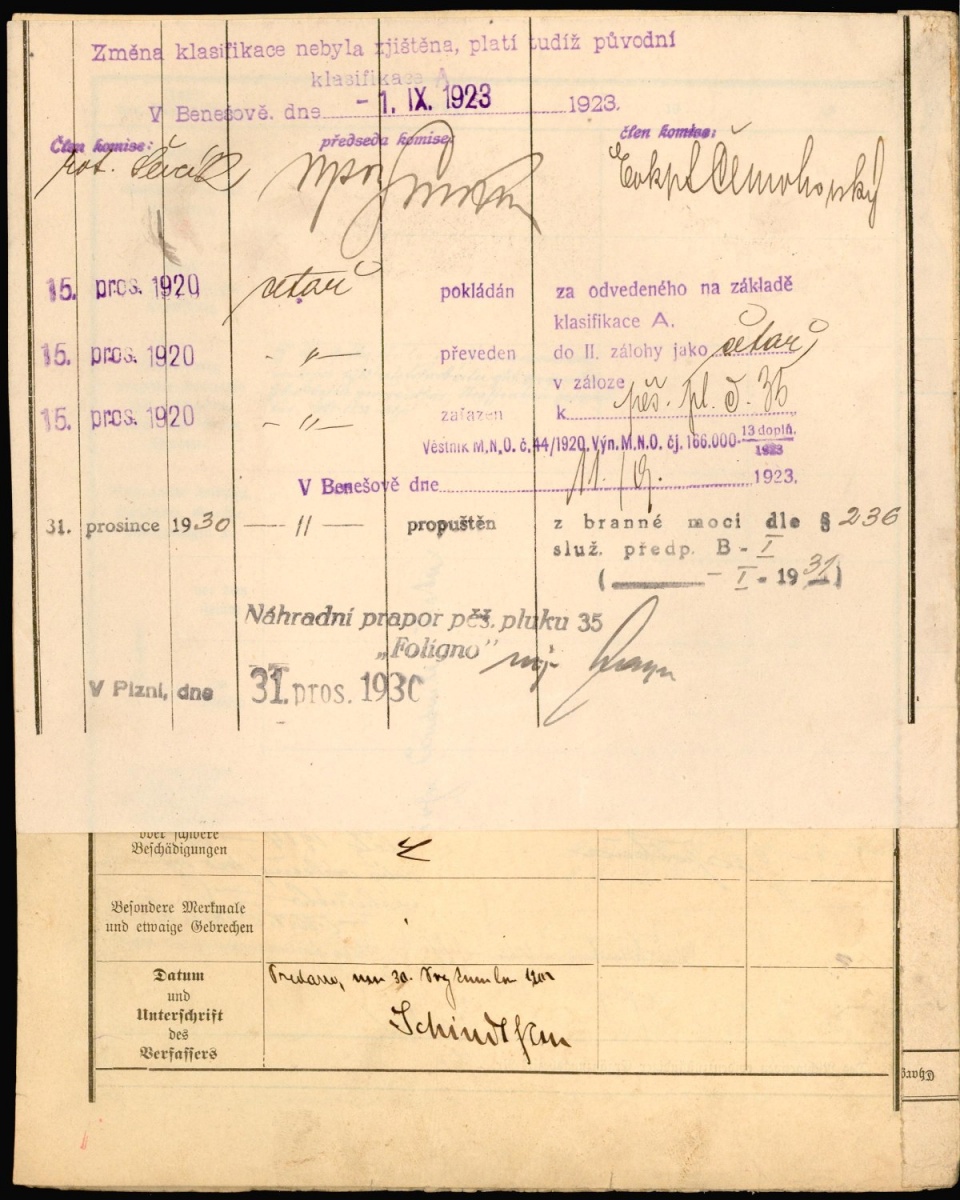 Změna klasifikace nebyla zjištěna, platí tudíž původní
klasifikace A
V Benešově. dne - 1. IX. 1923 1923.
Člen komise: předseda komise: člen komise:
15. pros. 1920 četař pokládán za odvedeného na základě
klasifikace A.
15. pros. 1920 - " - převeden do II. zálohy jako četař
v záloze
15. pros. 1920 - " - zařazen k pěš. pl. č. 35
Věstník M.N.O. č. 44/1920. Výn. M.N.O. čj. 166.000- 13 doplň. / 1923
V Benešově dne 11./9. 1923.
31. prosince 1930 — " — propuštěn z branné moci dle § 236
služ. předp. B - I
( - I - 1931)
Náhradní prapor pěš. pluku 35
„Foligno"
V Plzni, dne 31. pros. 1930
oder schwere
Beschädigungen
Besondere Merkmale
und etwaige Gebrechen
Datum
und
Unterschrift
des
Verfassers
30.